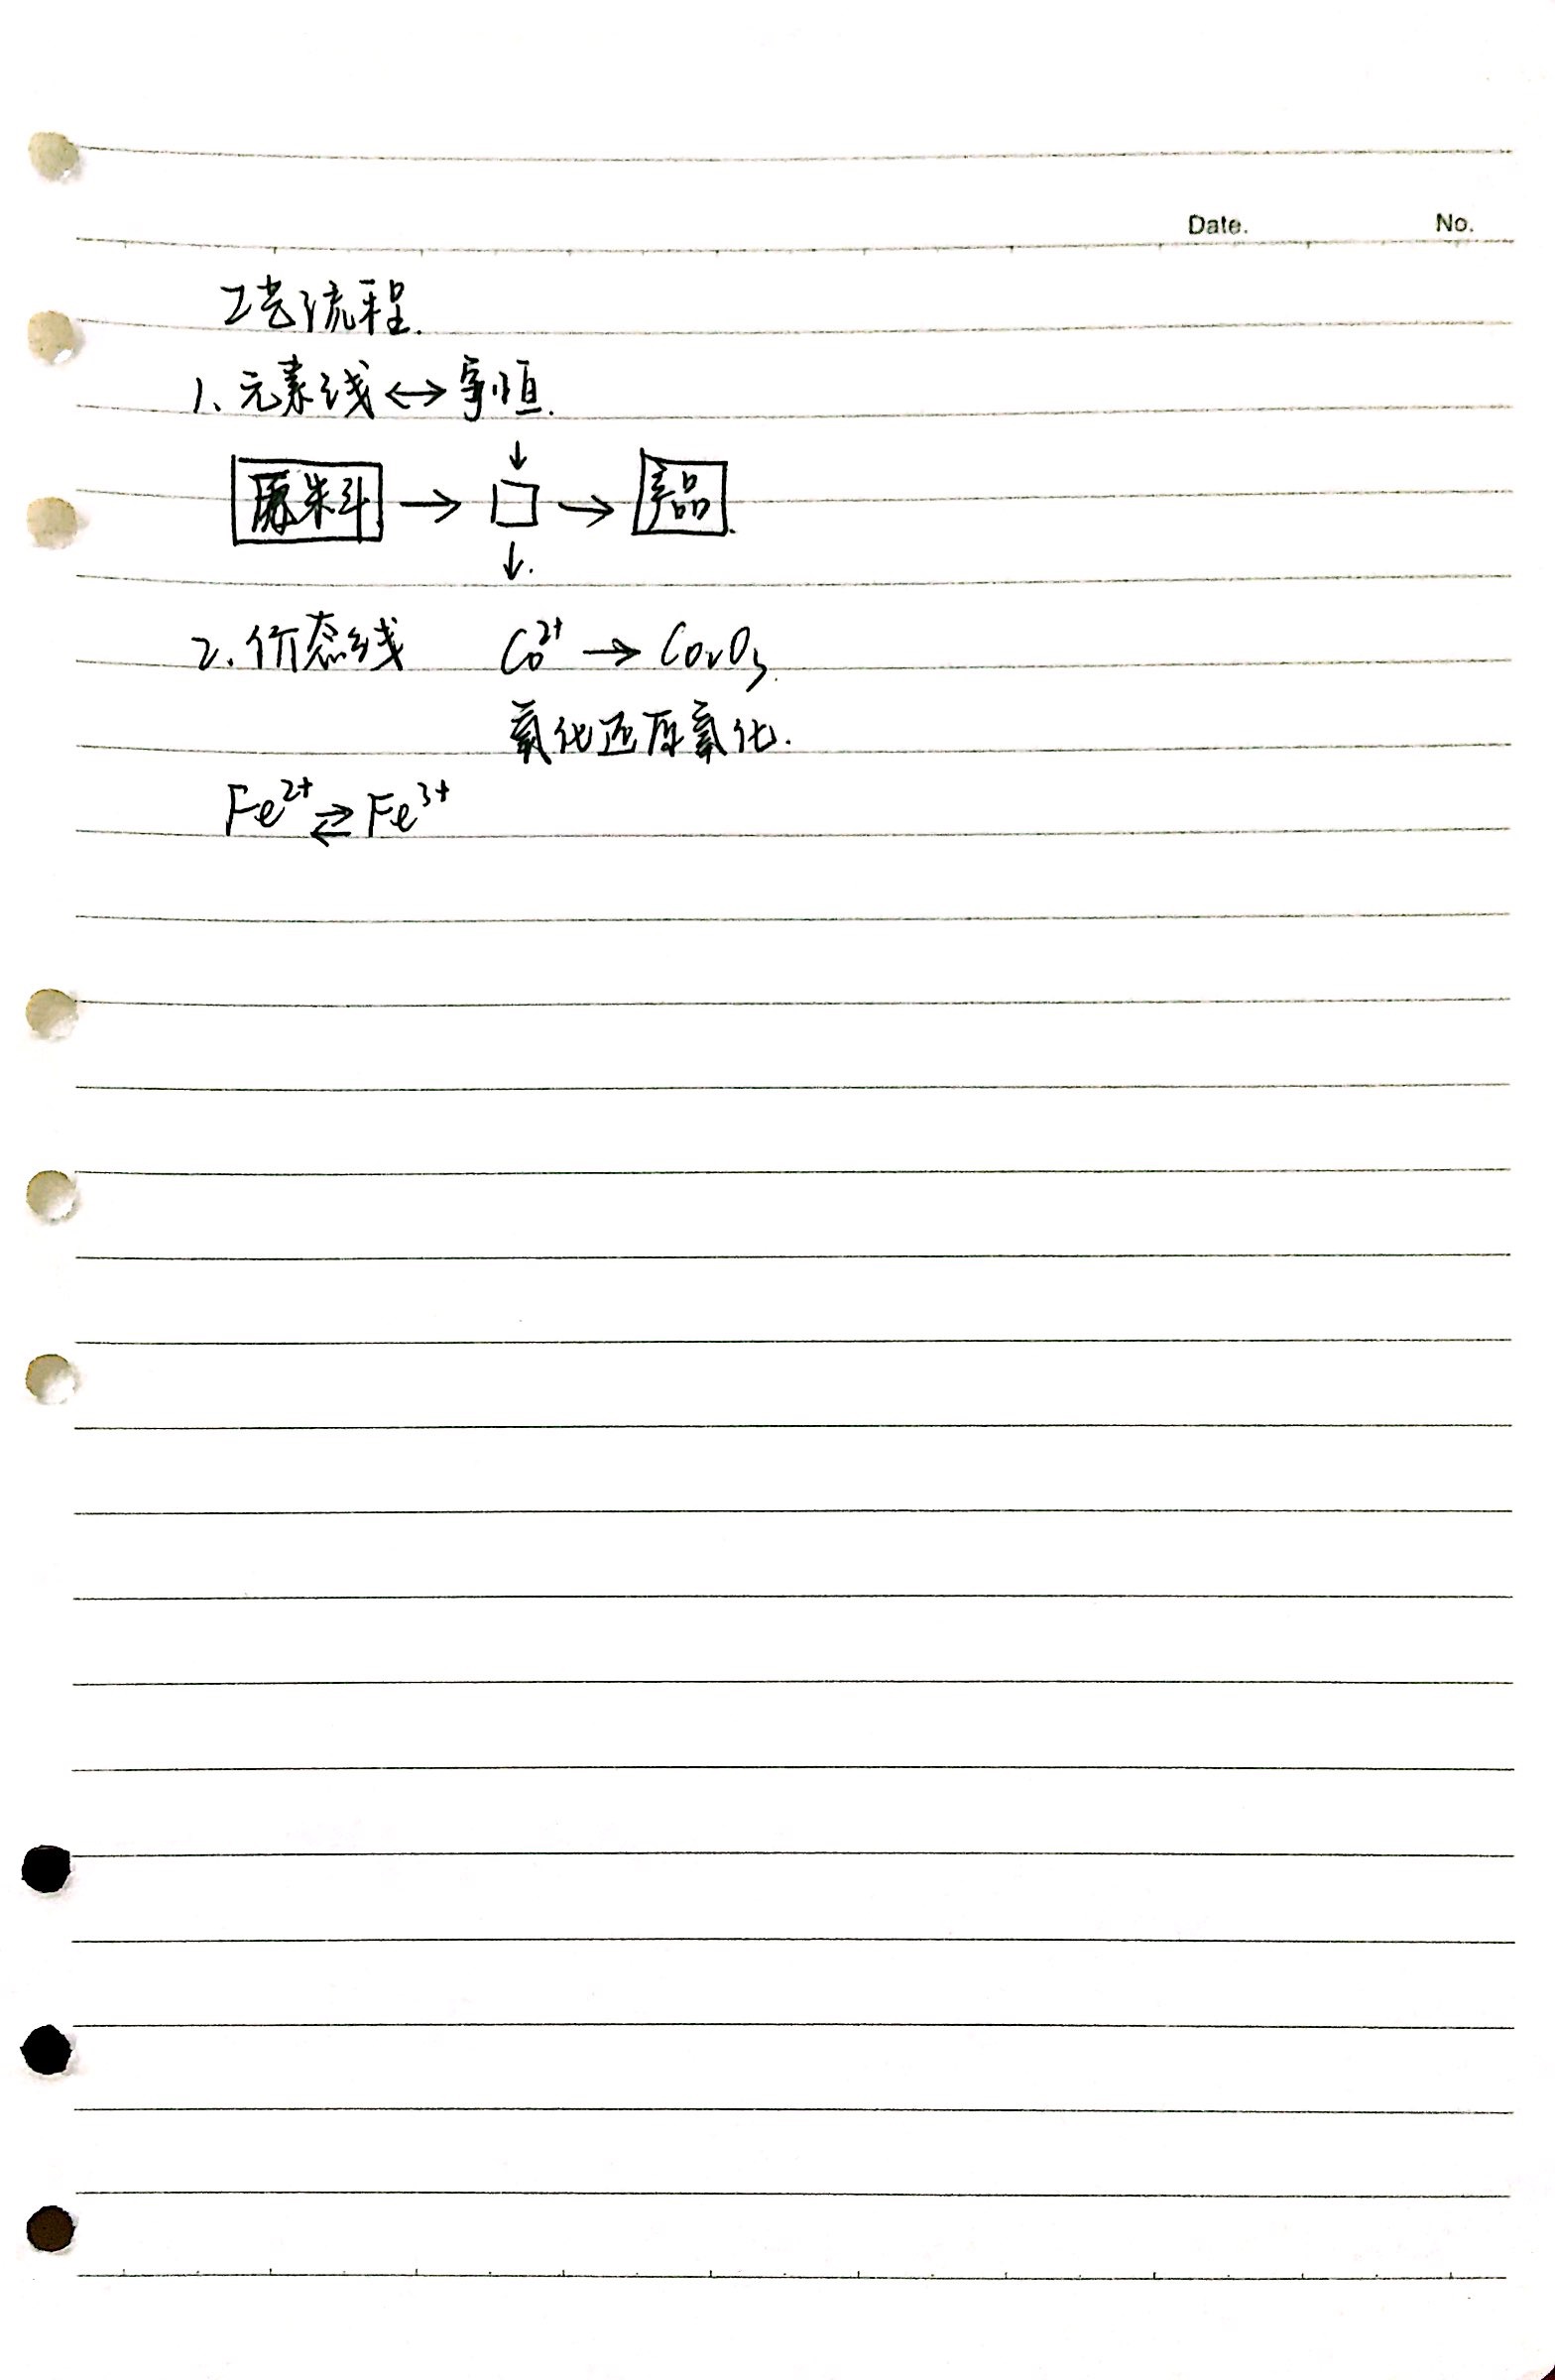 Date. No.
工艺流程.
1、元素线 ↔ 守恒.
原料 → □ → 产品.
2、价态线 Co²⁺ → Co₂O₃.
氧化还原氧化.
Fe²⁺ ⇄ Fe³⁺